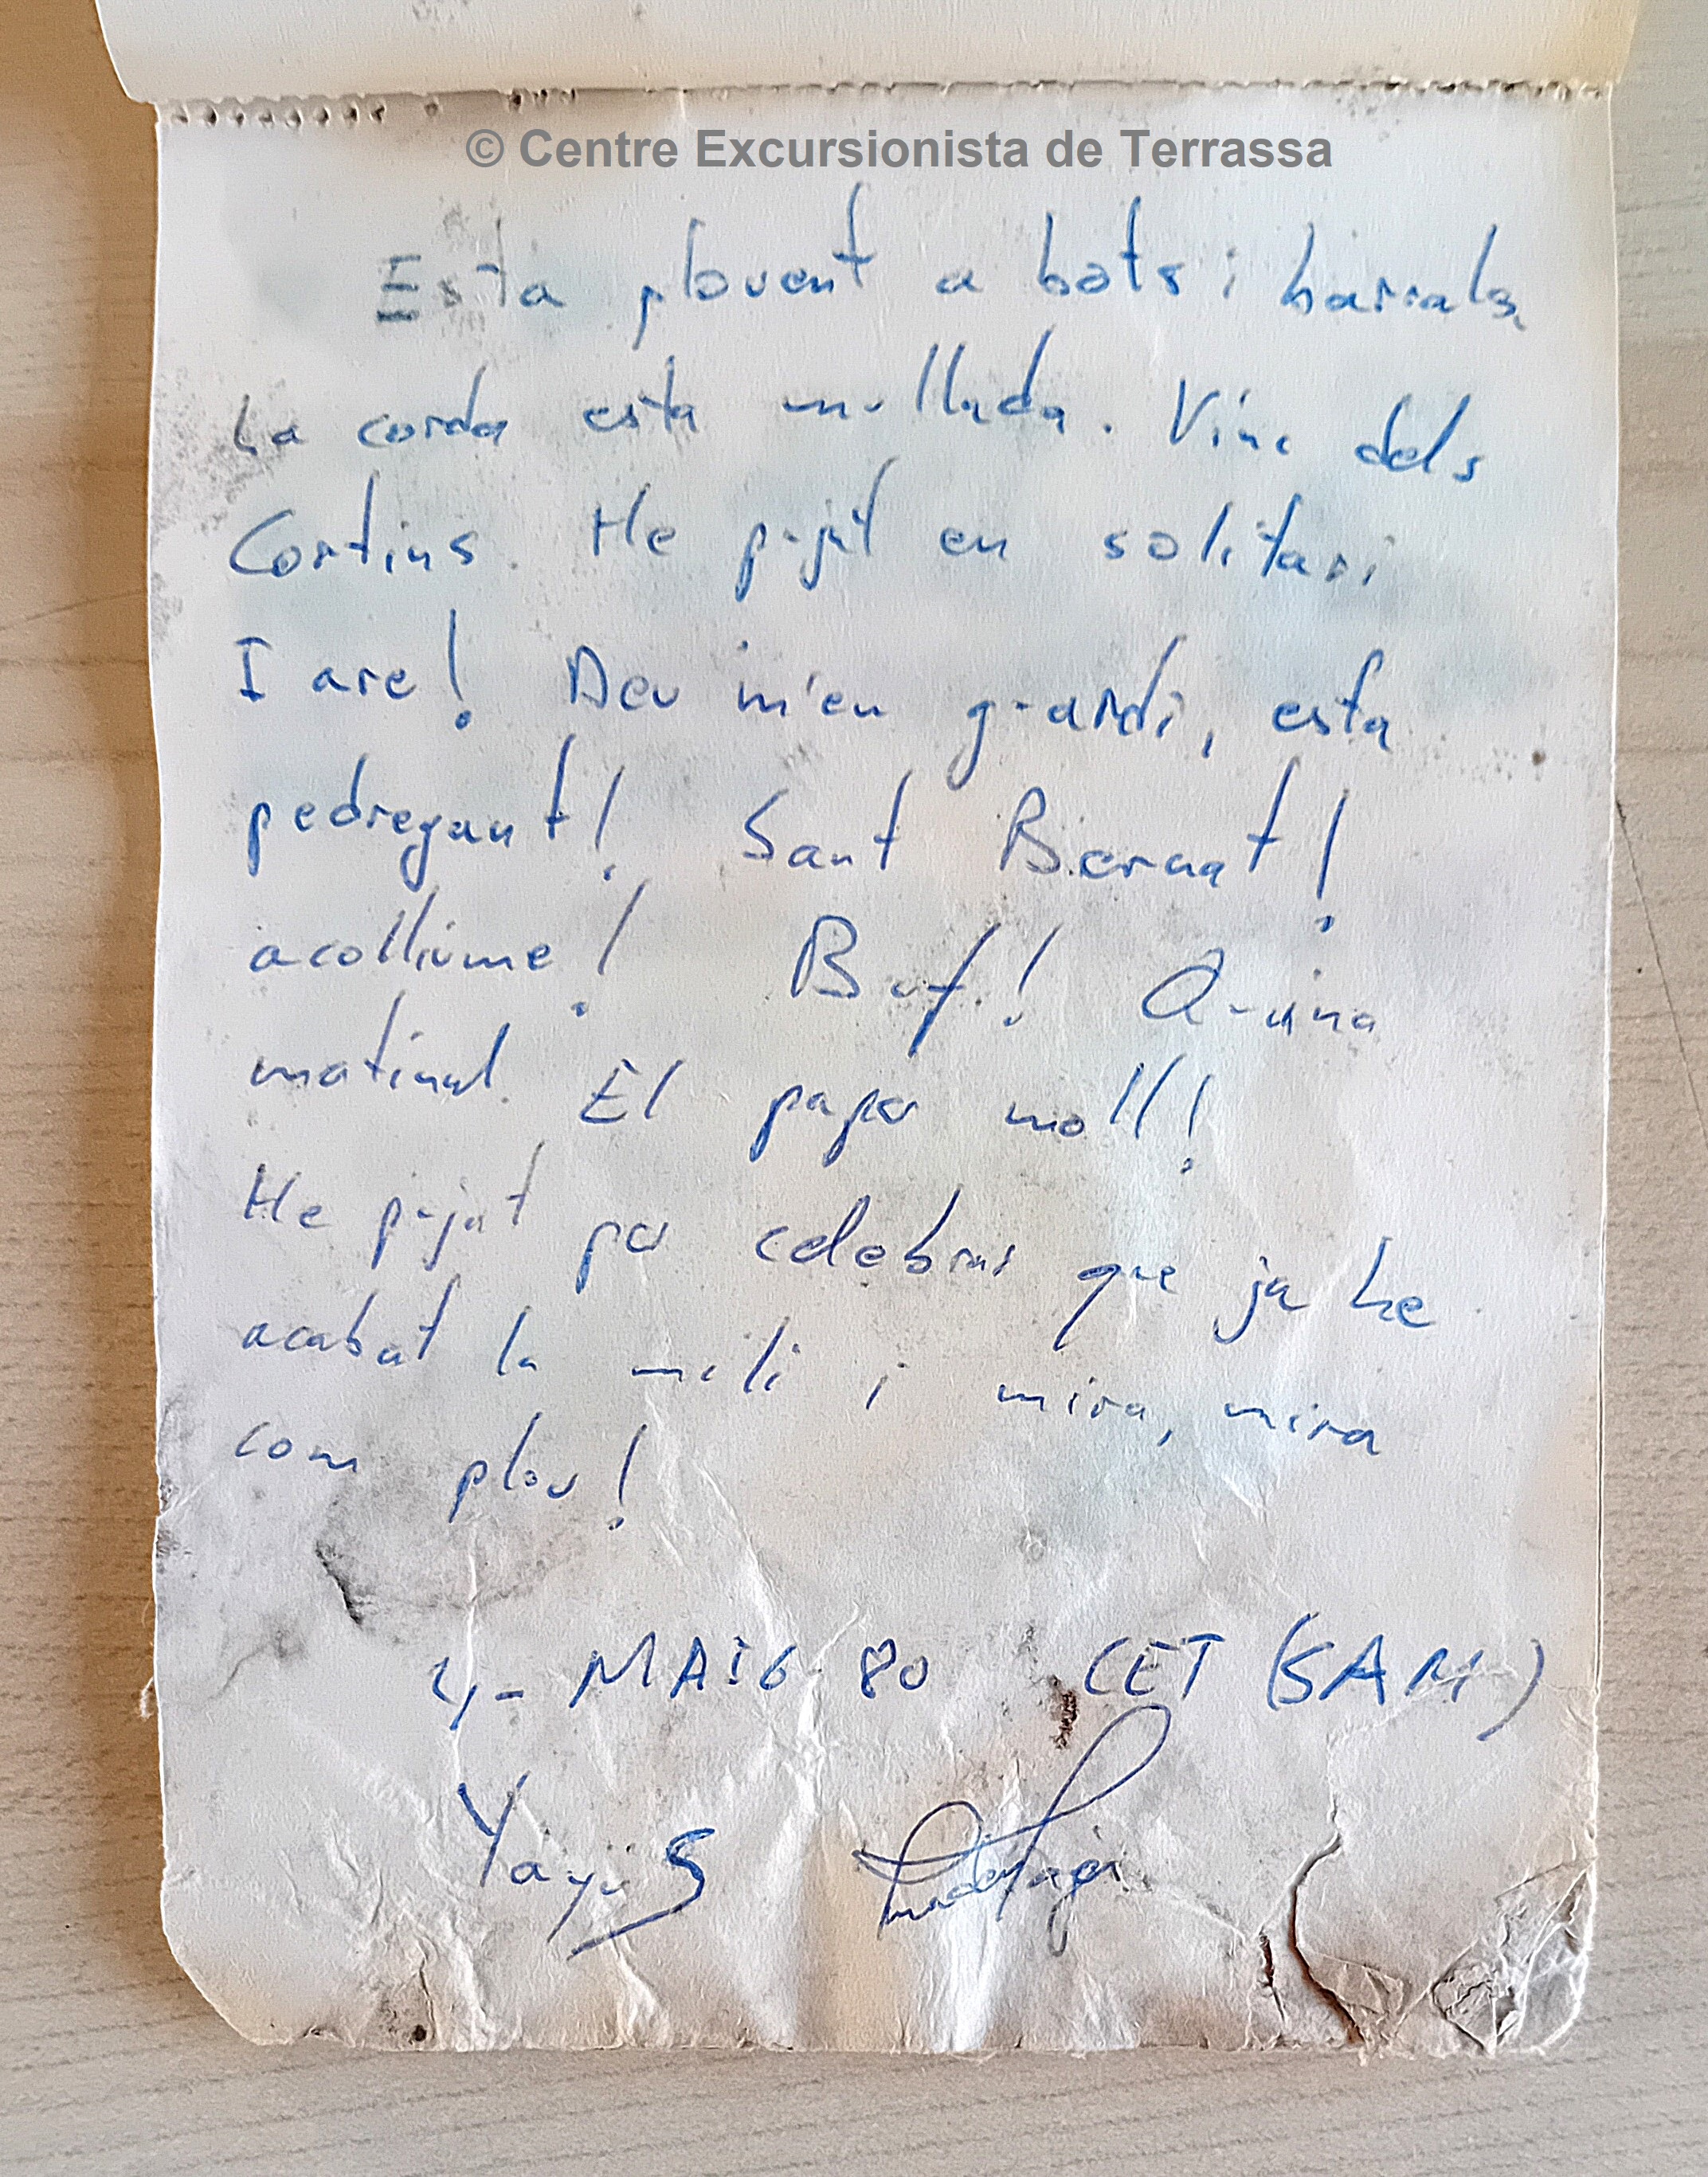 © Centre Excursionista de Terrassa
Esta plovent a bots i barrals,
La corda esta mullada. Vinc dels
Cortins. He pujat en solitari
I are! Deu m'en guardi, esta
pedregant! Sant Bernat!
acolliume! Buf! Quina
matinal. El paper moll!
He pujat per celebrar que ja he
acabat la mili i mira, mira
com plou!
4 - MAIG 80 CET (SAM)